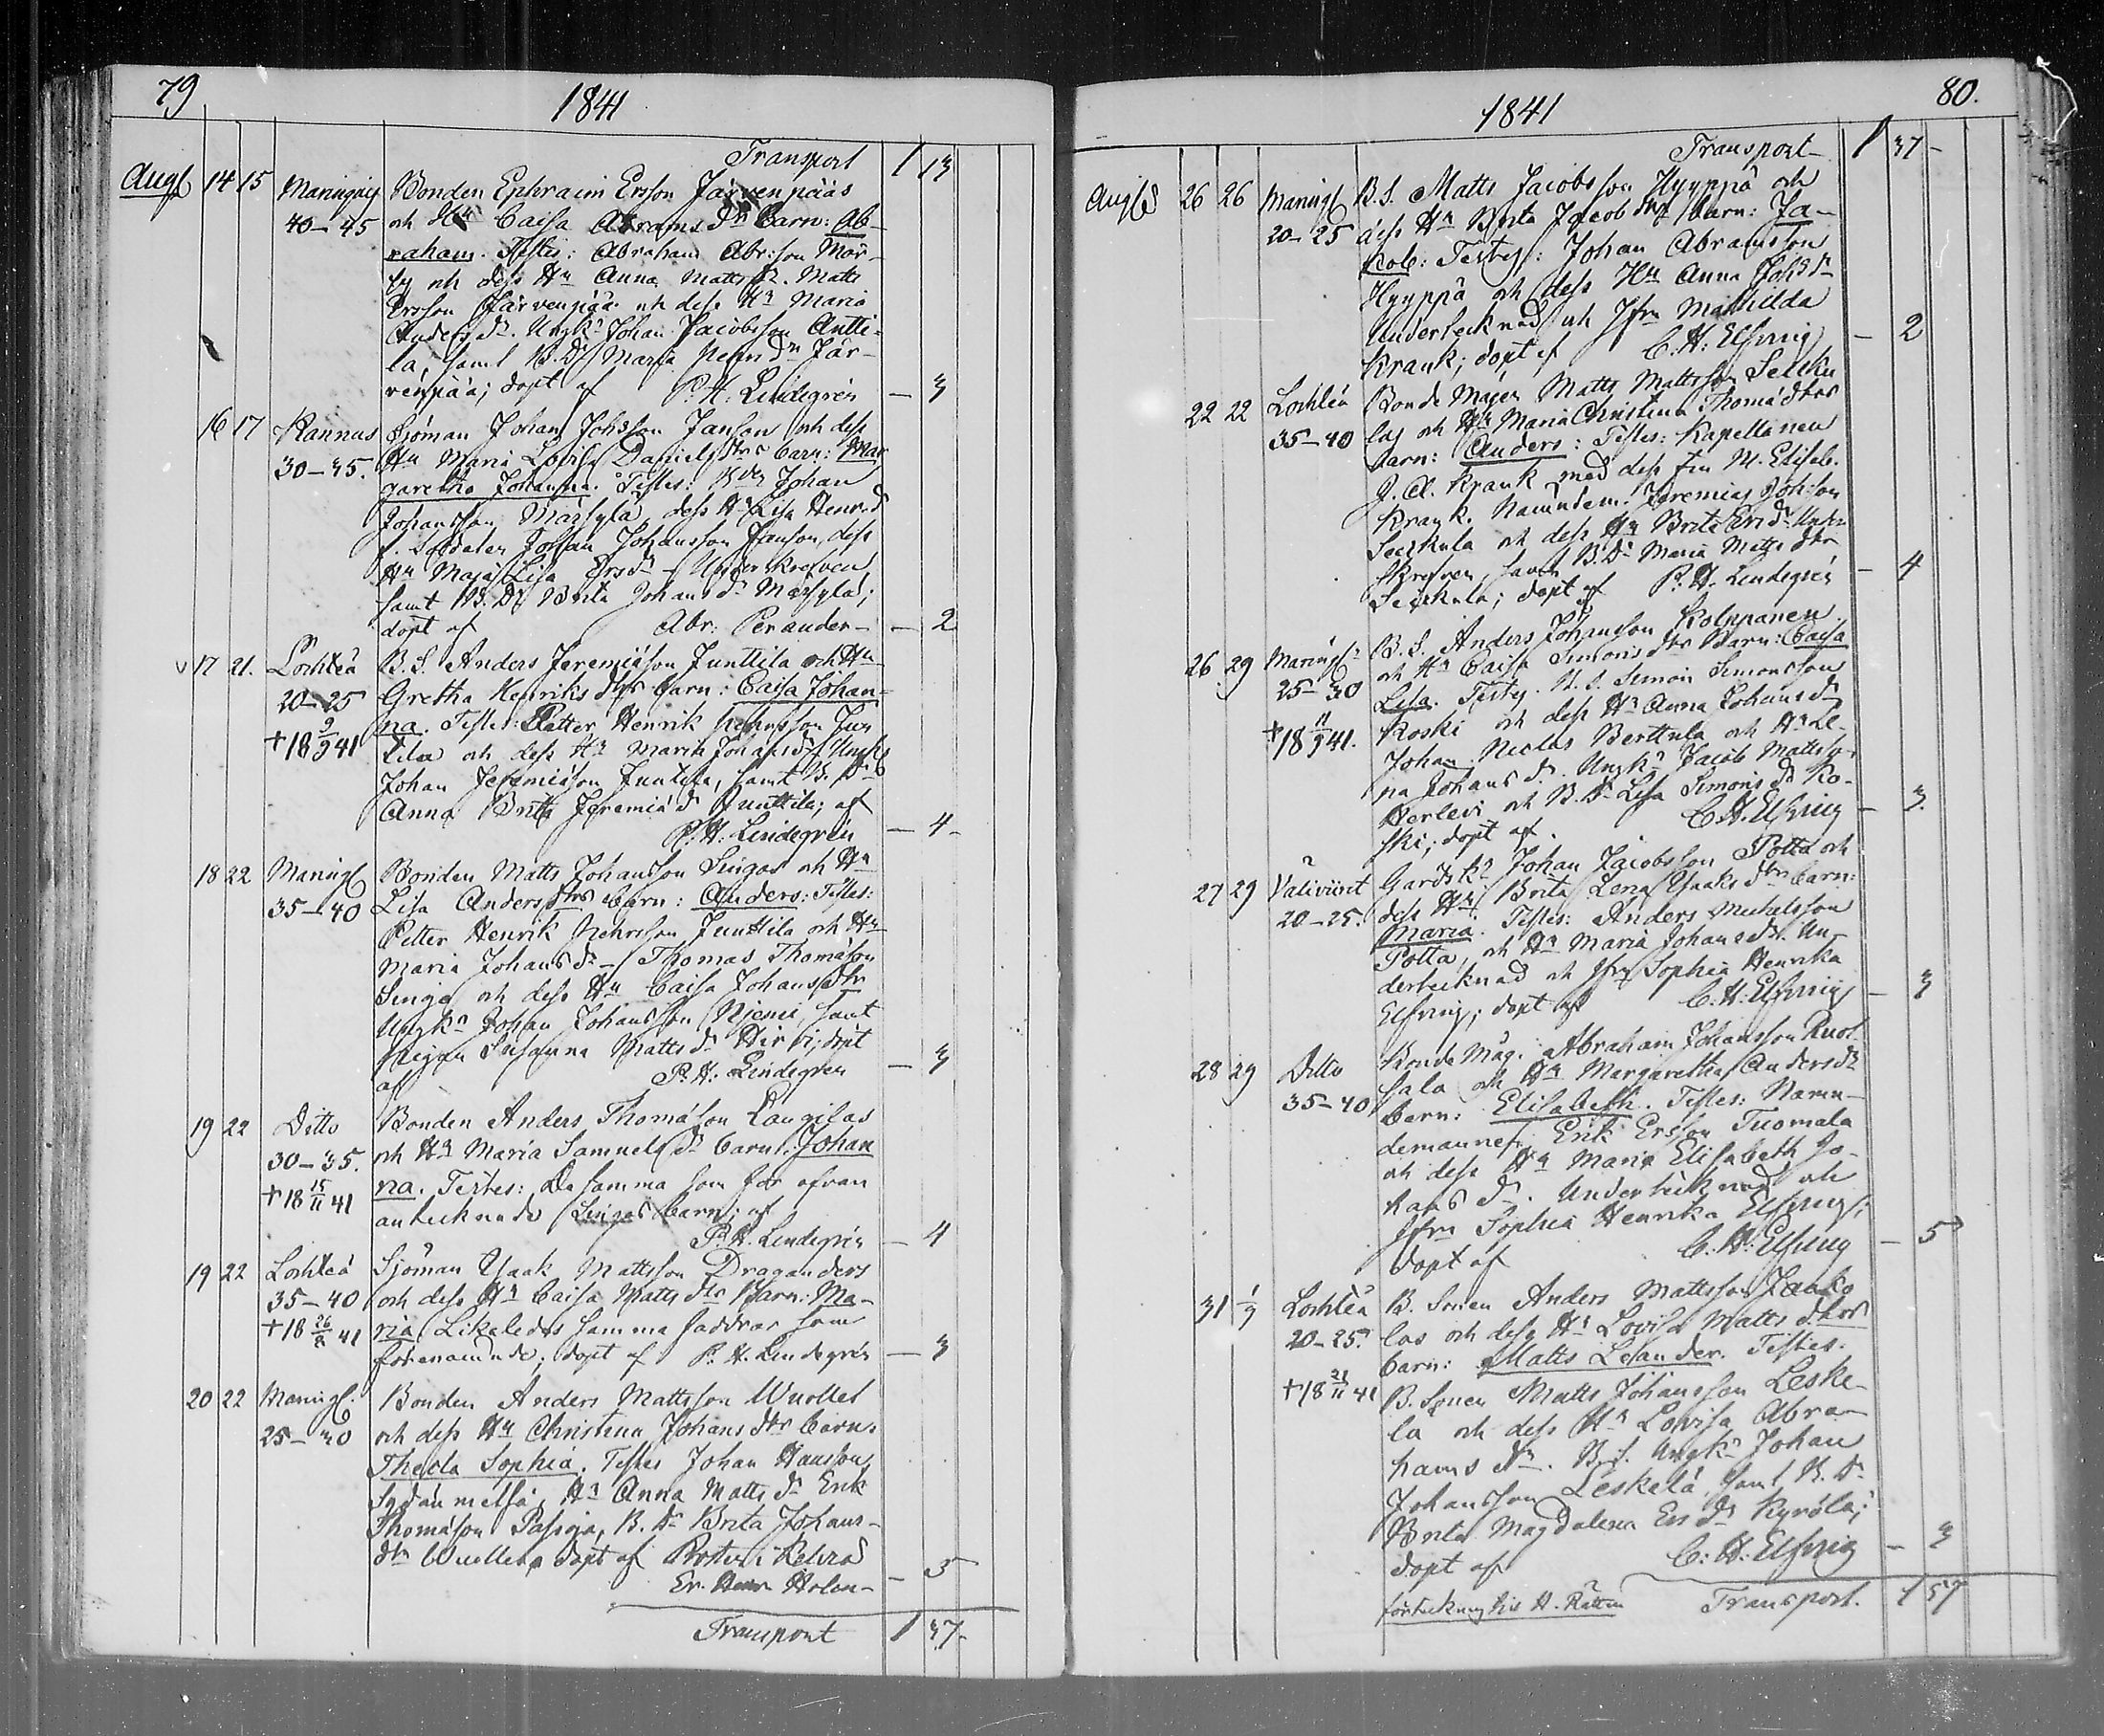 79
1841
Transport 1 13
Augt 14 15 Maningaig Bonden Ephraim Ersson Järvenpääs
40–45 och Hu Caisa Abrams dr Barn: Ab-
raham. Testes: Abraham Abr:son Mär-
sy och dess Hu Anna Matts dr. Matts
Ersson Järvenpää och dess Hu Maria
Anders dr. Ungk: Johan Jacobsson Antti-
la, samt B. Dr Maria Jär-
venpää; döpt af P. H. Lindegrén – 3
16 17 Kannus Sjöman Johan Johsson Janson och dess
30–35. Hu Maria Lovisa Daniels dtrs barn: Mar
garetha Johanna. Testes: Johan
Johansson Märsylä, dess Hu Lisa Henr. d
f. Soldaten Johan Johansson Janson, dess
Hu Maja Lisa Ersdr – Underskrefven
samt B. Dr Brita Johans dr Märsylä;
döpt af Abr: Perander – – 2
17 21. Lochteå B. S. Anders Jeremiäson Junttila och Hu
20–25 Gretha Henriks dtrs barn: Caisa Johan-
+18 9/9 41 na. Testes: Petter Henrik Jun
tila och dess Hu Maria Johans dr Ungk:
Johan Jeremiäson Juntila, samt B. Dr
Anna Brita Jeremiä dr Junttila; af
P. H. Lindegrén – 4 –
18 22 Maningl Bonden Matts Johansson Singas och Hu
35–40 Lisa Anders dtrs barn: Anders: Testes:
Petter Henrik Junttila och Hu
Maria Johans dr – Thomas Thomäson
Singa och dess Hu Caisa Johans dtr
Ungkn Johan Johansson Njemi, samt
Pigan Susanna Matts dr Hirvi; döpt
af P. H. Lindegrén – 3
19 22 Ditto Bonden Anders Thomäson Laugilas
30–35. och Hu Maria Samuels dr barn: Johan
+18 15/11 41 na. Testes: De samma som för ofvan
antecknade Singas barn; af
P. H. Lindegrén – 4
19 22 Lochteå Sjöman Isaak Mattsson Draganders
35–40 och dess Hu Caisa Matts dtr Barn: Ma-
+18 26/8 41 ria Likaledes samma faddrar som
förenämnde; döpt af P. H. Lindegrén – 3
20 22 Maningl. Bonden Anders Mattsson Wuollet
25–30 och dess Hu Christina Johans dtr barn:
Thecla Sophia. Testes Johan Hansson
Sydänmetsä, Hu Anna Matts dr Erik
Thomäson Passoja, B. Dr Brita Johans-
dtr Wuollet, döpt af Rosten i Kelviå
Er. Henr Holm – – 5
Transport 1 37 –
80.
1841
Transport 1 37 –
Augusti 26 26 Maningl B. S. Matts Jacobsson Hyyppä och
20–25 dess Hu Brita Jacob dtrs barn: Ja-
kob: Testes: Johan Abramsson
Hyyppä och dess Hu Anna Johs dr
Undertecknad och Jfru Mathilda
Krank; döpt af C. H. Elfving – 2
22 22 Lochteå Bonde Mågen Matts Mattsson Seicku
35–40 las och Hu Maria Christina Thomä dtrs
barn: Anders: Testes: Kapellanen
J. A. Krank med dess fru M. Elisab.
Krank. Nämndem. Jeremias Joh:son
Seickula och dess Hu Brita Ers dr Under
skrefven, samt B. Dr Maria Matts dtr
Seickula; döpt af P. H. Lindegrén – 4
26 29 Maningl: B. S. Anders Johansson Kolppanen
25–30 och Hu Caisa Simons dtr Barn: Caisa
+18 11/9 41. Lisa. Testes. B. S. Simon Simonsson
Koski och dess Hu Anna Johans dr
Johan Niclas Berttula och Hu Le-
na Johans dr. Ungkn Jacob Mattsson
Herlevi och B. Dr Lisa Simons dr Ko-
ski; döpt af. C. H. Elfving – 3
27 29 Yliviirret Gårdsk: Johan Jacobsson Potta och
20–25. dess Hu Brita Lena Isaaks dtrs barn:
Maria. Testes: Anders Michelsson
Potta, och Hu Maria Johans dr. Un-
dertecknad och Jfru Sophia Henrika
Elfving; döpt af C. H. Elfving – 3
28 29 Ditto Bonde Måg: Abraham Johansson Ruot-
35–40 sala och Hu Margaretha Anders dr
barn: Elisabeth. Testes: Nämn-
demannen Erik Ersson Tuomala
och dess Hu Maria Elisabeth Jo-
hans dr. Undertecknad och
Jfru Sophia Henrika Elfving;
döpt af C. H. Elfving – 5
31 1/9 Lochteå B. Sonen Anders Mattsson Janko
20–25. las och dess Hu Lovisa Matts dtrs
+18 21/11 41 barn: Matts Leander. Testes.
B. Sonen Matts Johansson Leske-
la och dess Hu Lovisa Abra-
hams dr. B. S. Ungkn Johan
Johansson Leskelä, samt B. Dr
Brita Magdalena Ers dr Kyrölä;
döpt af C. H. Elfving – 3
Transport. 1 57